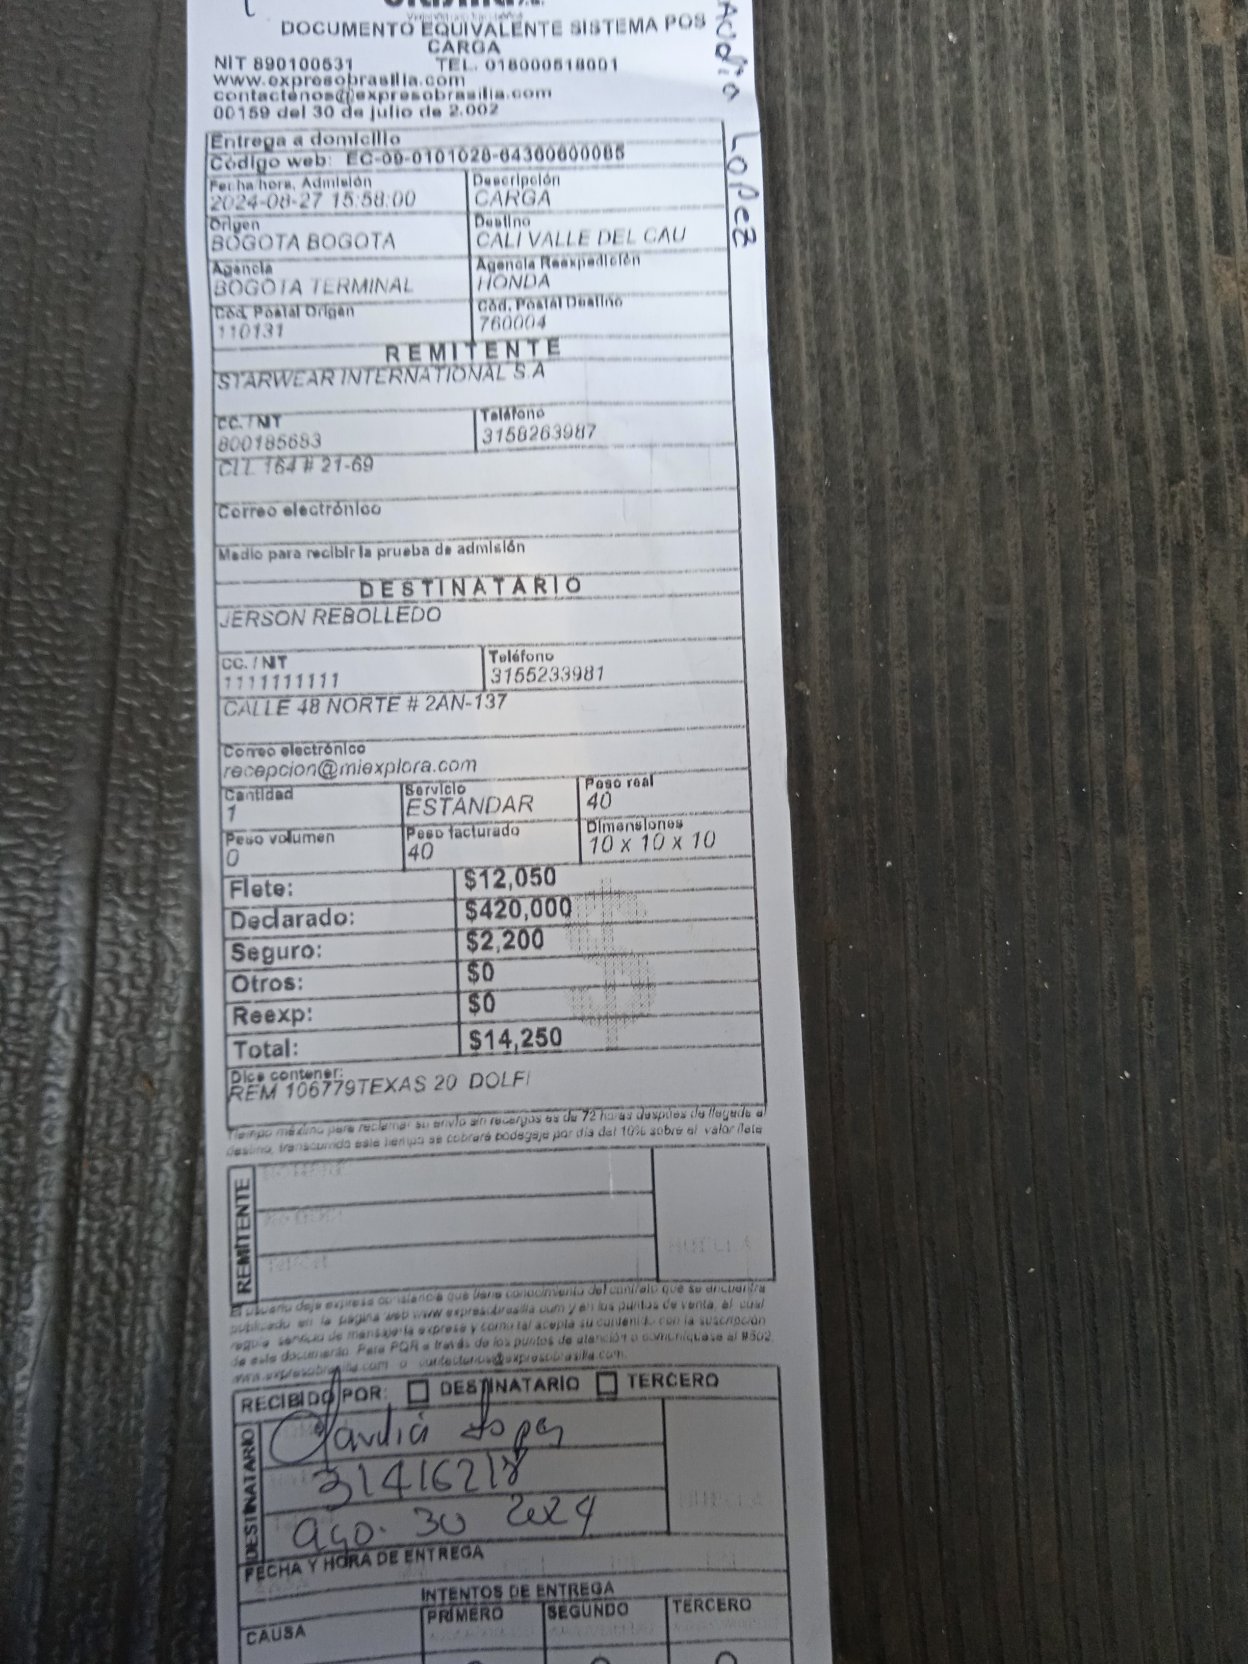 DOCUMENTO EQUIVALENTE SISTEMA POS
CARGA
NIT 890100531 TEL. 018000518001
www.expresobrasilia.com
contactenos@expresobrasilia.com
00159 del 30 de julio de 2.002
Lopez
Entrega a domicilio
Código web: EC-09-0101028-64360600065
Fecha hora, Admisión Descripción
2024-08-27 15:58:00 CARGA
Origen Destino
BOGOTA BOGOTA CALI VALLE DEL CAU
Agencia Agencia Reexpedición
BOGOTA TERMINAL HONDA
Cód. Postal Origen Cód. Postal Destino
110131 760004
REMITENTE
STARWEAR INTERNATIONAL S.A
CC. / NIT Teléfono
800185683 3158263987
CLL 164 # 21-69
Correo electrónico
Medio para recibir la prueba de admisión
DESTINATARIO
JERSON REBOLLEDO
CC. / NIT Teléfono
1111111111 3155233981
CALLE 48 NORTE # 2AN-137
Correo electrónico
recepcion@miexplora.com
Cantidad Servicio Peso real
1 ESTANDAR 40
Peso volumen Peso facturado Dimensiones
0 40 10 x 10 x 10
Flete: $12,050
Declarado: $420,000
Seguro: $2,200
Otros: $0
Reexp: $0
Total: $14,250
Dice contener:
REM 106779TEXAS 20 DOLFI
Tiempo máximo para reclamar su envío sin recargos es de 72 horas después de llegada a
destino, transcurrido este tiempo se cobrará bodegaje por día del 10% sobre el valor flete
REMITENTE
HUELLA
El usuario deja expresa constancia que tiene conocimiento del contrato que se encuentra
publicado en la pagina web www expresobrasilia com y en los puntos de venta, el cual
regula servicio de mensajería expresa y como tal acepta su contenido con la suscripción
de este documento. Para PQR a través de los puntos de atención o comuníquese al #502
www.expresobrasilia.com o contactenos@expresobrasilia.com.
RECIBIDO POR: DESTINATARIO TERCERO
DESTINATARIO
Claudia Lopez
31416218
ago. 30 2024
FECHA Y HORA DE ENTREGA
INTENTOS DE ENTREGA
CAUSA PRIMERO SEGUNDO TERCERO